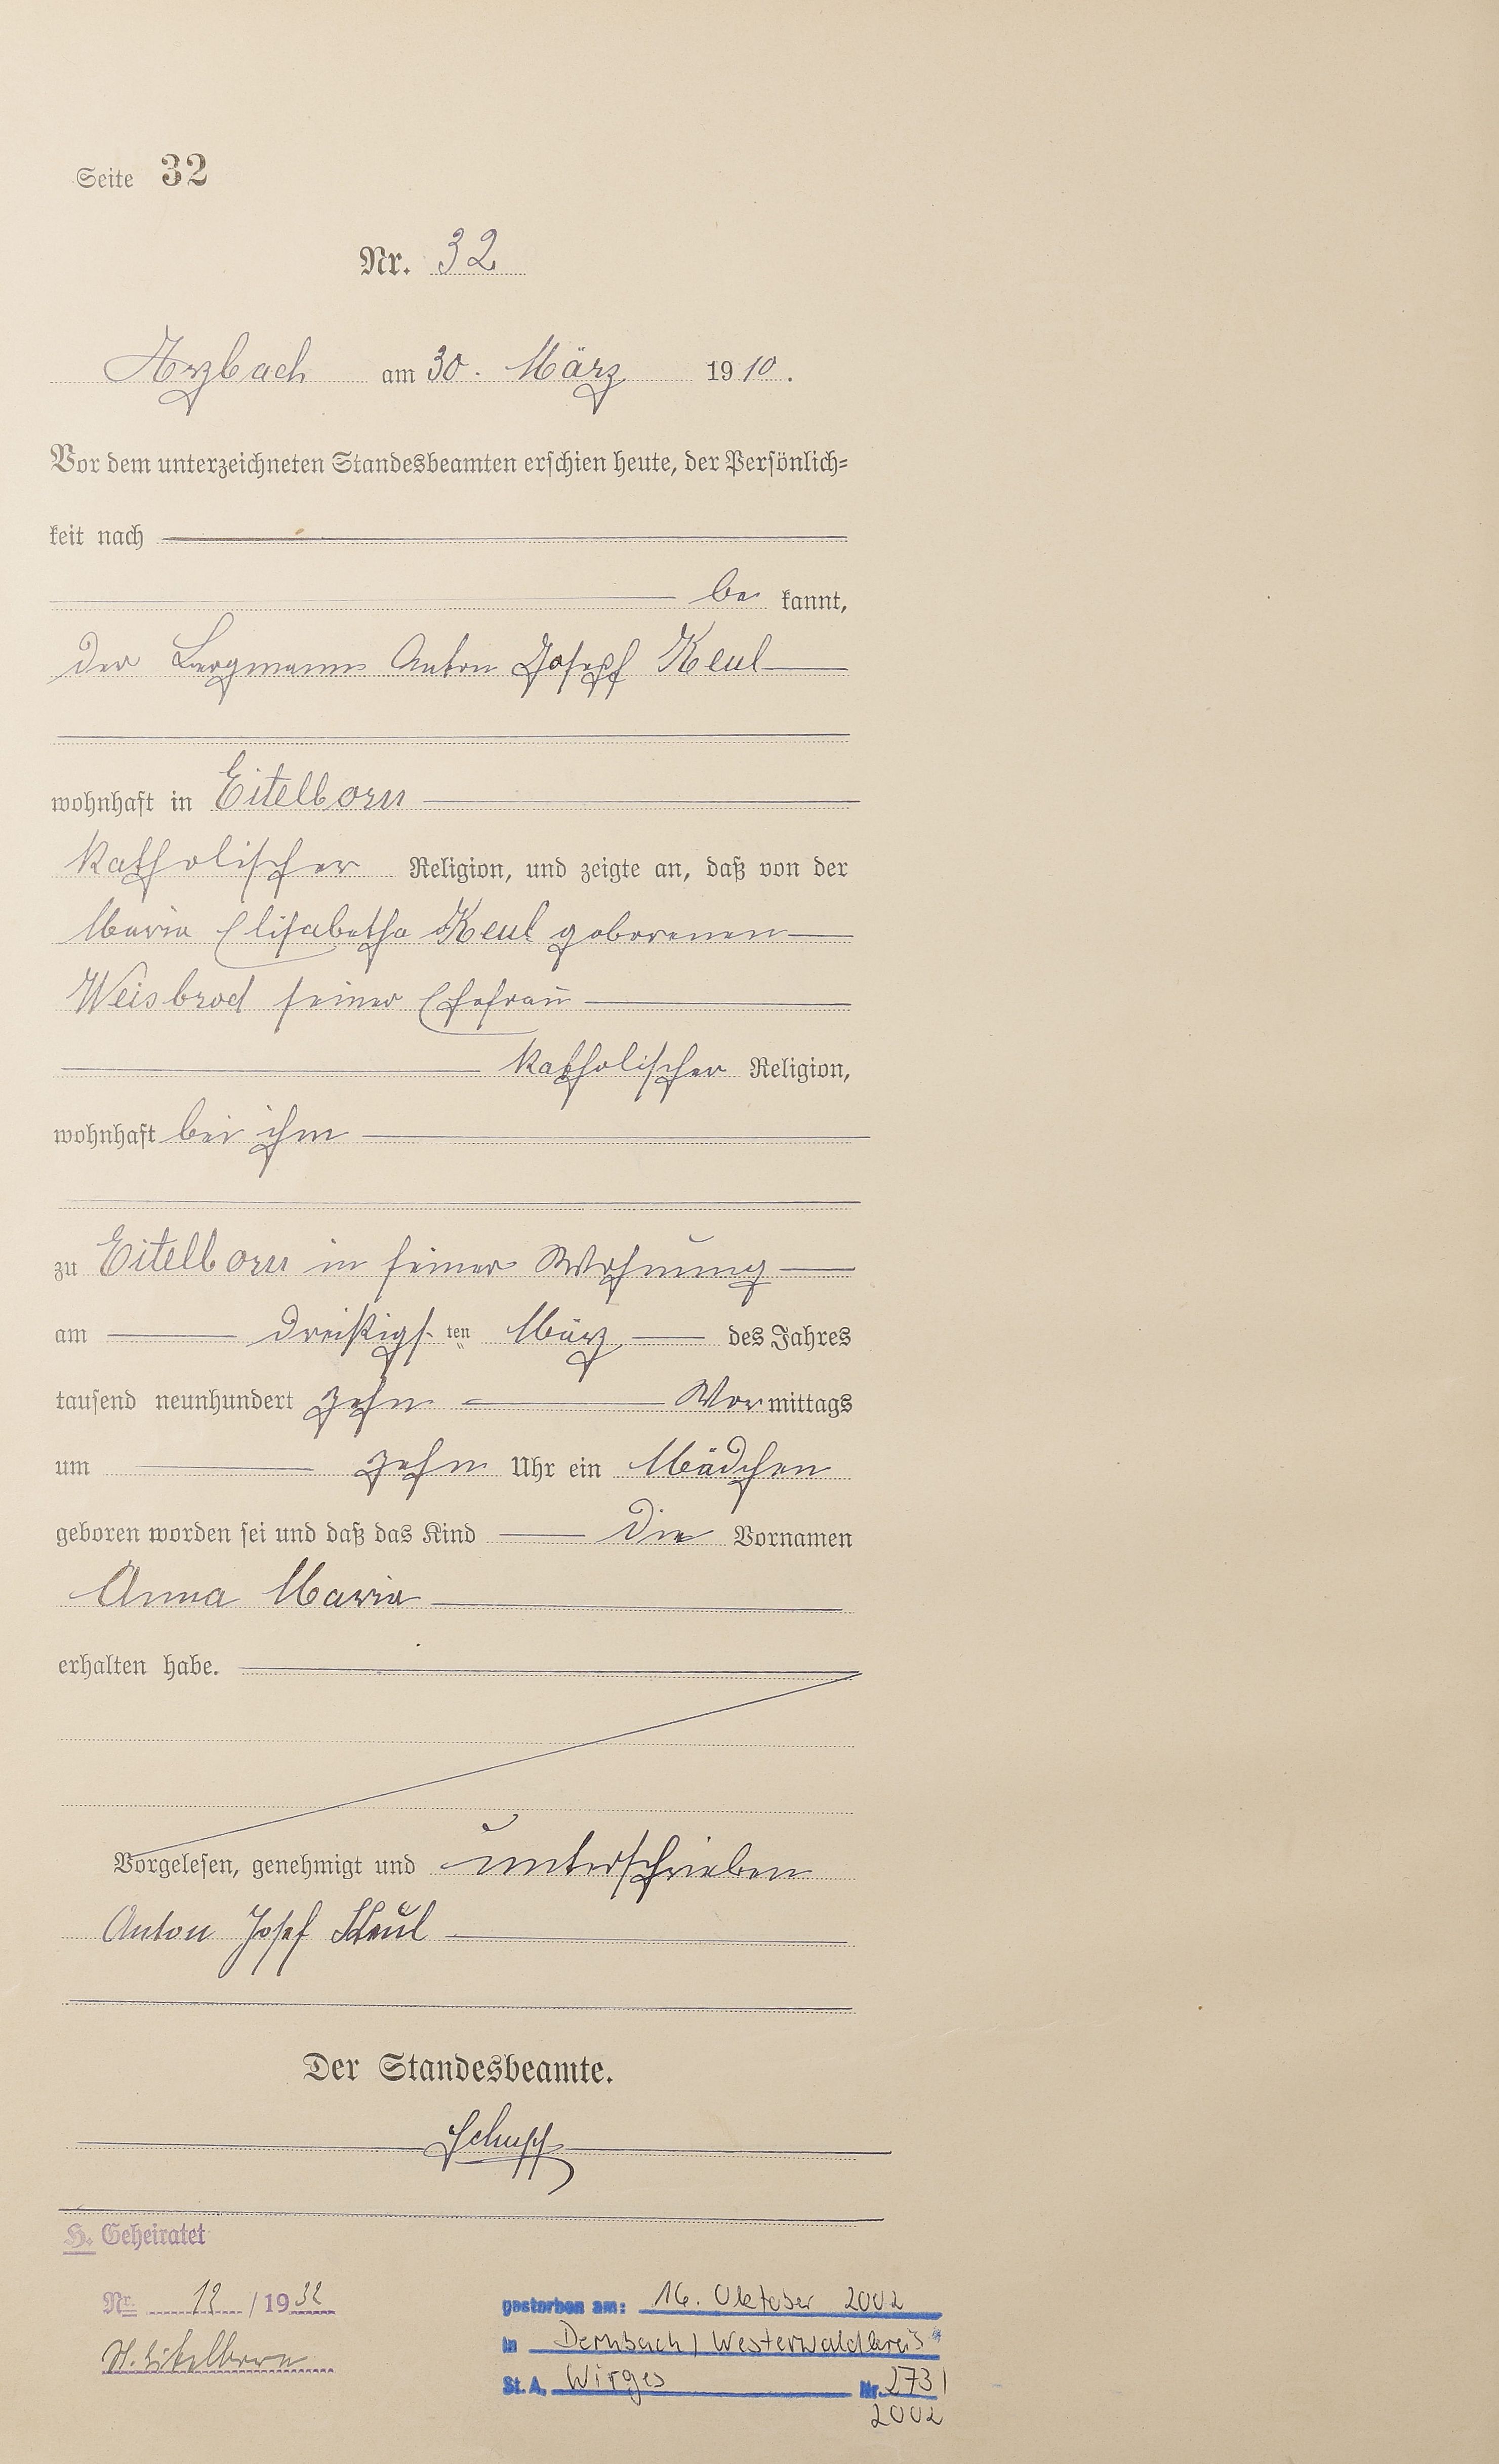 Seite 32
Nr. 32
Arzbach am 30. März 1910.
Vor dem unterzeichneten Standesbeamten erschien heute, der Persönlich-
keit nach
be kannt,
der Bergmann Anton Joseph Keul
wohnhaft in Eitelborn
katholischer Religion, und zeigte an, daß von der
Maria Elisabetha Keul geborenen
Weisbrod seiner Ehefrau
katholischer Religion,
wohnhaft bei ihm
zu Eitelborn in seiner Wohnung
am dreißigsten März des Jahres
tausend neunhundert zehn Vormittags
um zehn Uhr ein Mädchen
geboren worden sei und daß das Kind die Vornamen
Anna Maria
erhalten habe.
Vorgelesen, genehmigt und unterschrieben
Anton Josef Keul
Der Standesbeamte.
Schupp
H. Geheiratet
Nr. 12 / 1932
St. Eitelborn
gestorben am: 16. Oktober 2002
in Dernbach / Westerwaldkreis
St. A. Wirges Nr. 273 /
2002